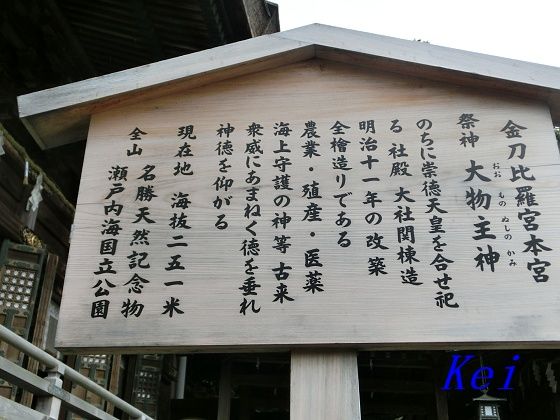 金刀比羅宮本宮
祭神 大物主神
おお もの ぬしの かみ
のちに崇徳天皇を合せ祀
る 社殿 大社関棟造
明治十一年の改築
全檜造りである
農業・殖産・医薬
海上守護の神等 古来
衆威にあまねく徳を垂れ
神徳を仰がる
現在地 海抜二五一米
全山 名勝天然記念物
瀬戸内海国立公園
Kei